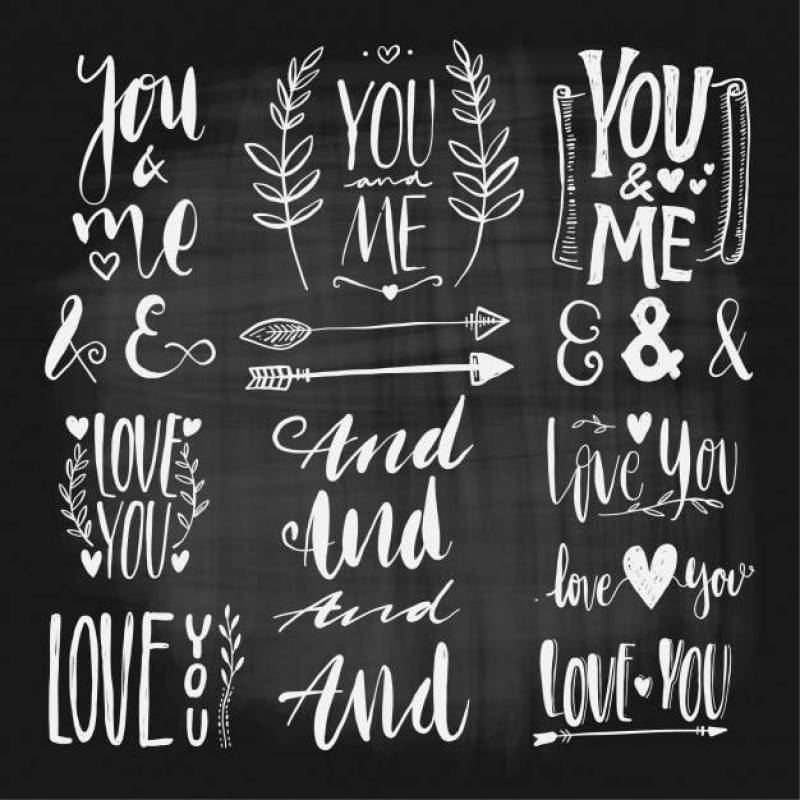 you
&
me
YOU
and
ME
YOU
&
ME
& &
& & &
LOVE
YOU
And
And
And
And
Love You
love you
LOVE YOU
LOVE
YOU